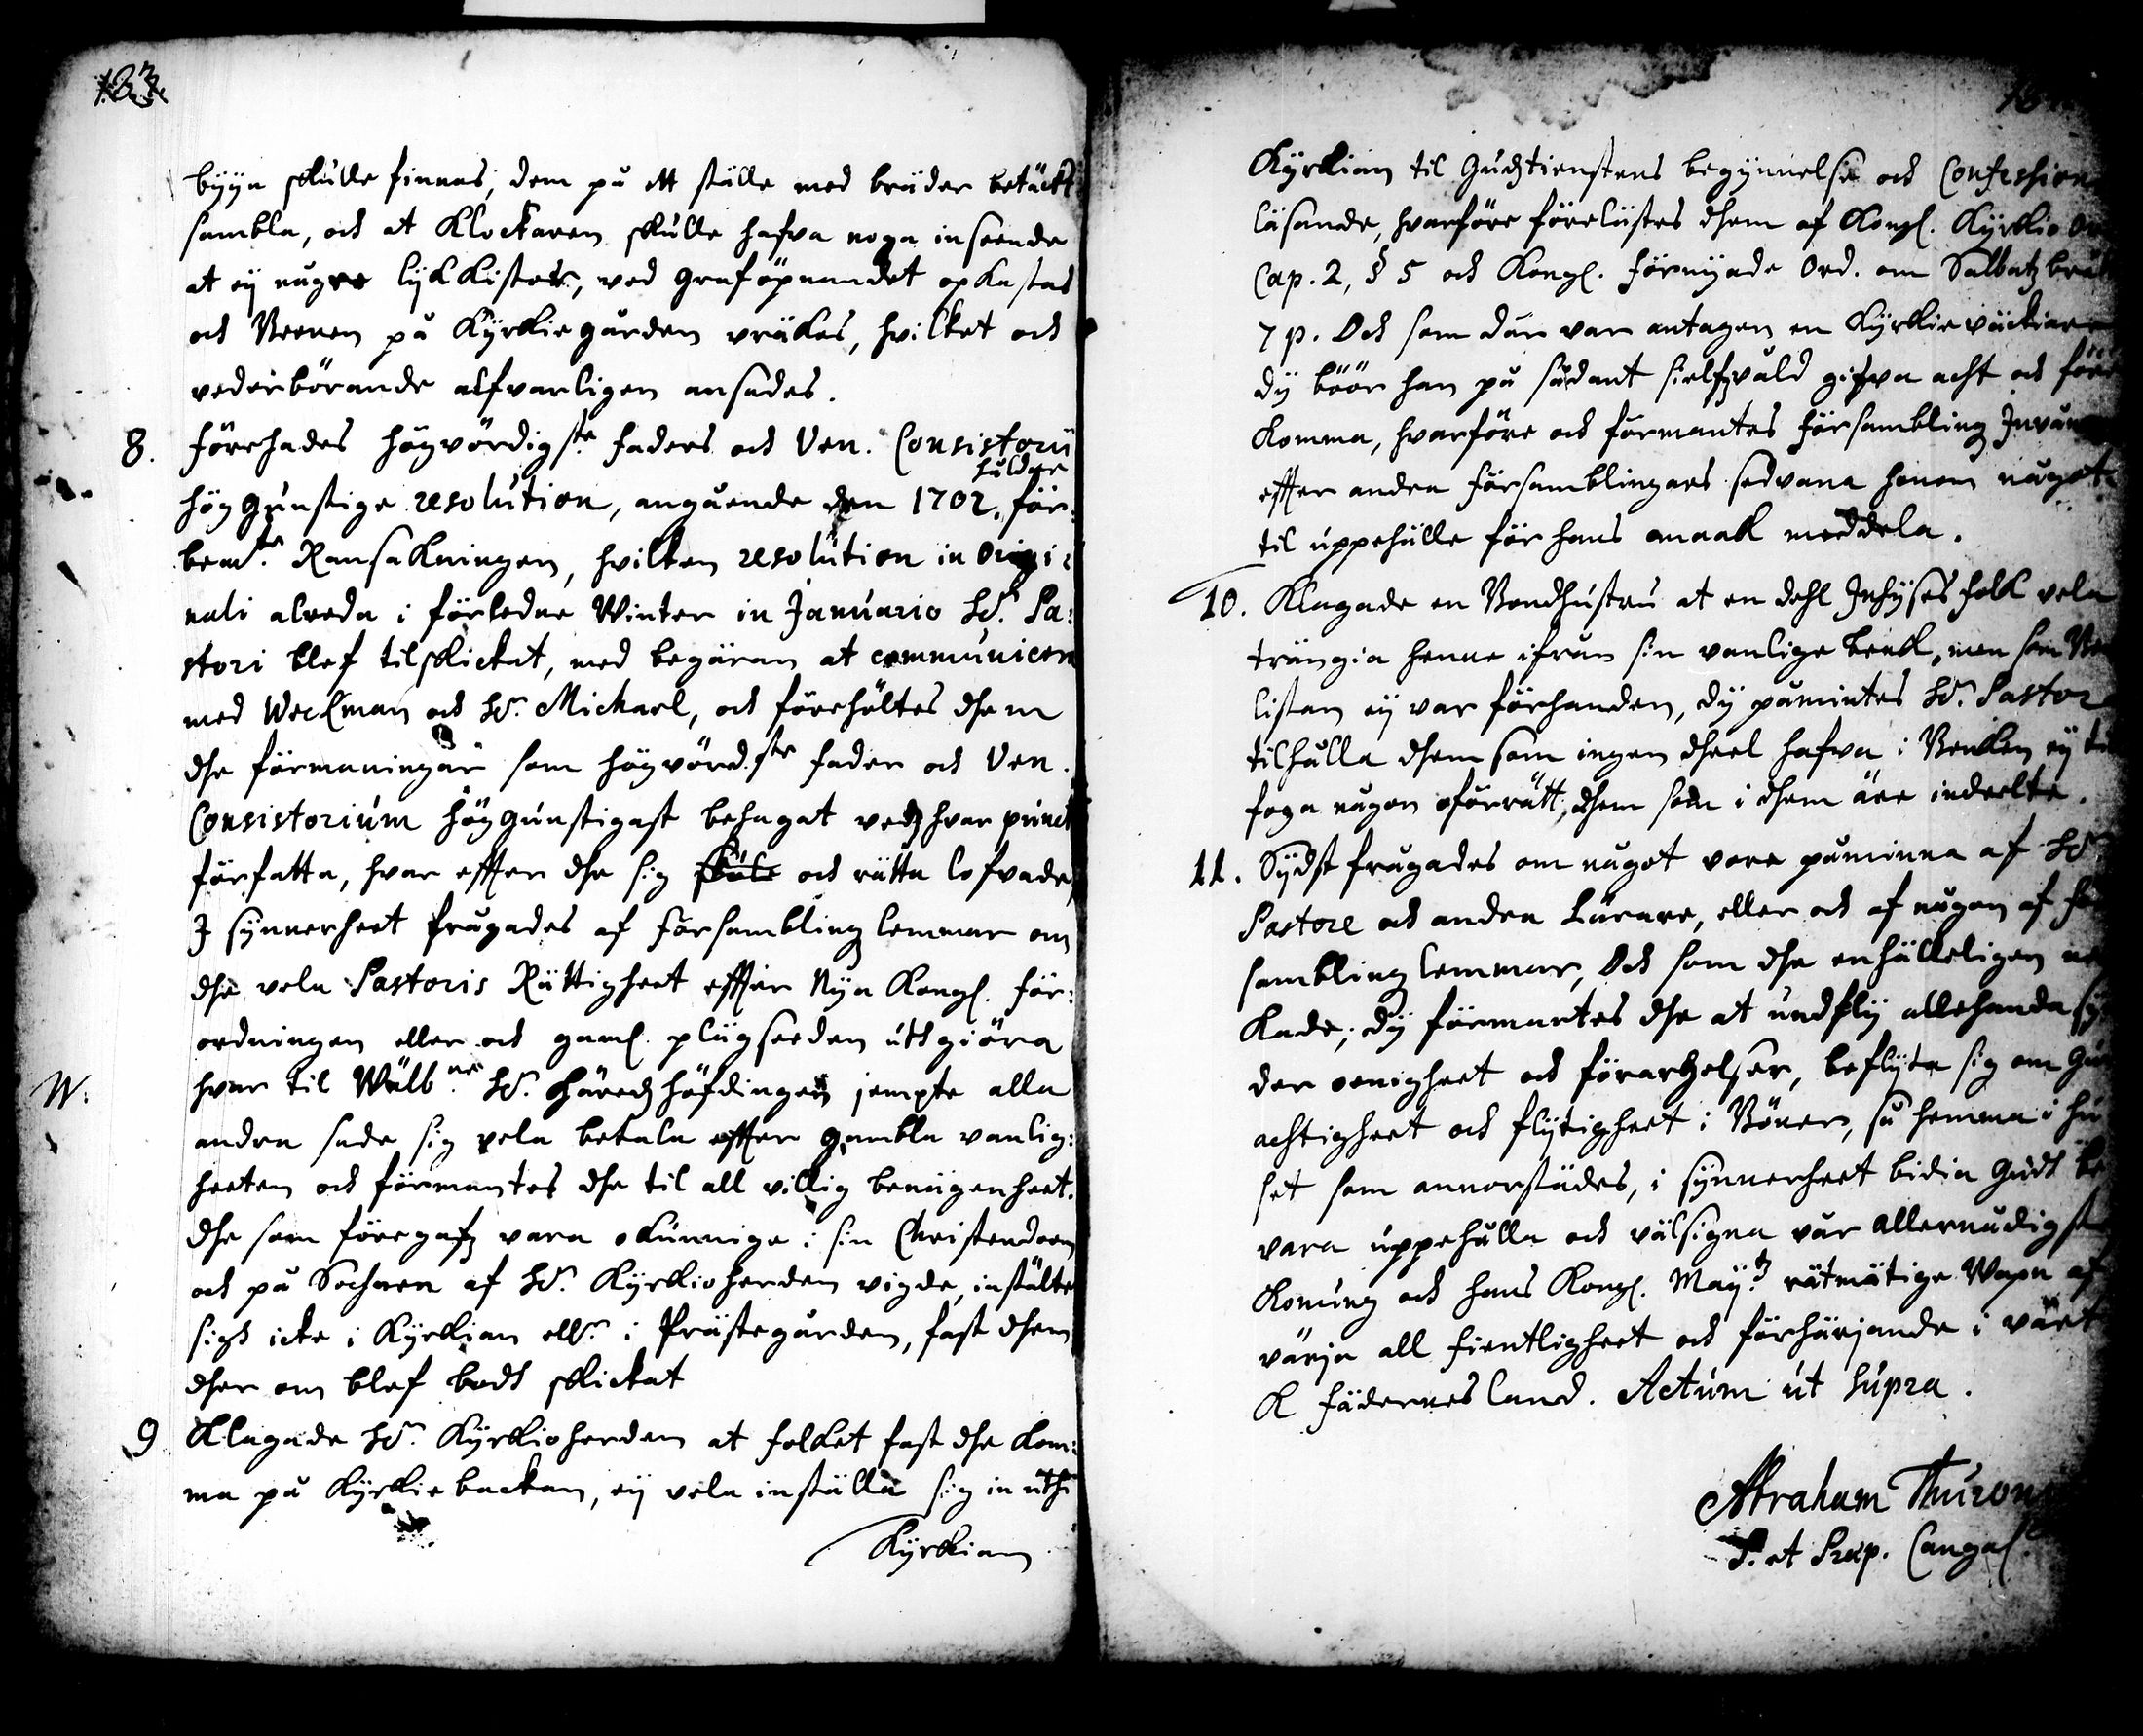 byyn skulle finnas, dem på ett ställe med bräder betäckt
sambla, och at Klockaren skulle hafva noga inseende
at ey någre lijkkistor, ved graföpnandet opkastas
och Beenen på Kyrkiegården vräkes, hvilket och
vederbörande alfvarligen ansades.
8. Förehades högvördigste Faders och Ven. Consistorii
huldne
höggunstige resolution, angående den 1702. för:
bemte Ransakningen, hvilken resolution in origi:
nali alreda i förledne Winter in Januario Hr. Pa:
stori blef tilskickat, med begäran at communicera
med Weckman och Hr. Michael, och förehöltes dhem
dhe förmaningar som högvörd.ste Fader och Ven.
Consistorium höggunstigast behagat vedh hvar punct
författa, hvar effter dhe sig och rätta lofvade,
I synnerheet frågades af Försambling lemmar om
dhe vela Pastoris Rättigheet effter Nya Kongl. För:
ordningen eller och gaml. plägseeden uthgiöra
hvar til Wälb.ne Hr. Häredzhöfdingen jempte alla
W.
andra sade sig vela betala effter gambla vanlig:
heeten och förmantes dhe til all villig benägenheet.
Dhe som föregafz vara okunnige i sin Christendoom
och på Sochnen af Hr. Kyrkioherden vigde, instälte
sigh icke i Kyrkian ellr. i Prästegården, fast dhem
dher om blef bodh skickat
9 Klagade Hr. Kyrkioherden at folket fast dhe kom:
ma på Kyrkiebackan, ey vela inställa sig in uthi
Kyrkian
Kyrkian til Gudztienstens begynnelse och Confession
läsande, hvarföre föreläстes dhem af Kongl. Kyrkio
Cap. 2, § 5 och Kongl. Förnyade Ord. om Sabbatz
7 p. Och som där var antagen en Kyrkieväckiare
dy böör han på sådant sielfzvåld gifva acht och före
komma, hvarföre och förmantes Försambling
effter andra Församblingars sedvana honom något
til uppehälle för hans omaak meddela.
10. Klagade en Bondhustru at en dehl Inhyses folk vela
trängia henne ifrån sin vanlige benk, men som
listan ey var förhanden, dy påmintes Hr. Pastor
tilhålla dhem som ingen dheel hafva i Benken ey til
foga någon oförrätt, dhem som i dhem äre indeelte.
11. Sydst frågades om något vore påminna af Hr
Pastore och andra Lärare, eller och af någon af
sambling lemmar, Och som dhe enhälleligen
kade; dy förmantes dhe at undfly allehanda
der oenigheet och förargelser, beflyta sig om
achtigheet och flijtigheet i Böner, så hemma i hu
set som annorstädes, i synnerheet bidia Gudh
vara uppehålla och välsigna vår allernådigste
Konung och hans Kongl. Maij:tz rätmätige Wapn af
värja all fientligheet och förhärjande i vårt
K Fädernesland. Actum ut supra.
Abraham Thuron
P. et Præp. Cangas.